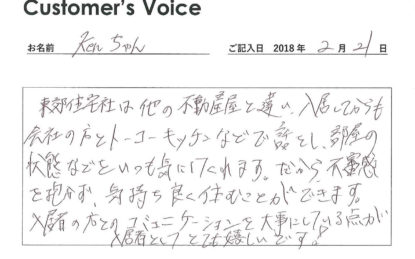 Customer's Voice
お名前 Kenちゃん ご記入日 2018年 2月 21日
東郊住宅社は他の不動産屋と違い、入居してからも
会社の方とトーコーキッチンなどで話をし、部屋の
状態などをいつも気にかけてくれます。だから不審感
を抱かず、気持ち良く住むことができます。
入居者の方とのコミュニケーションを大事にしている点が
入居者としてとても嬉しいです!